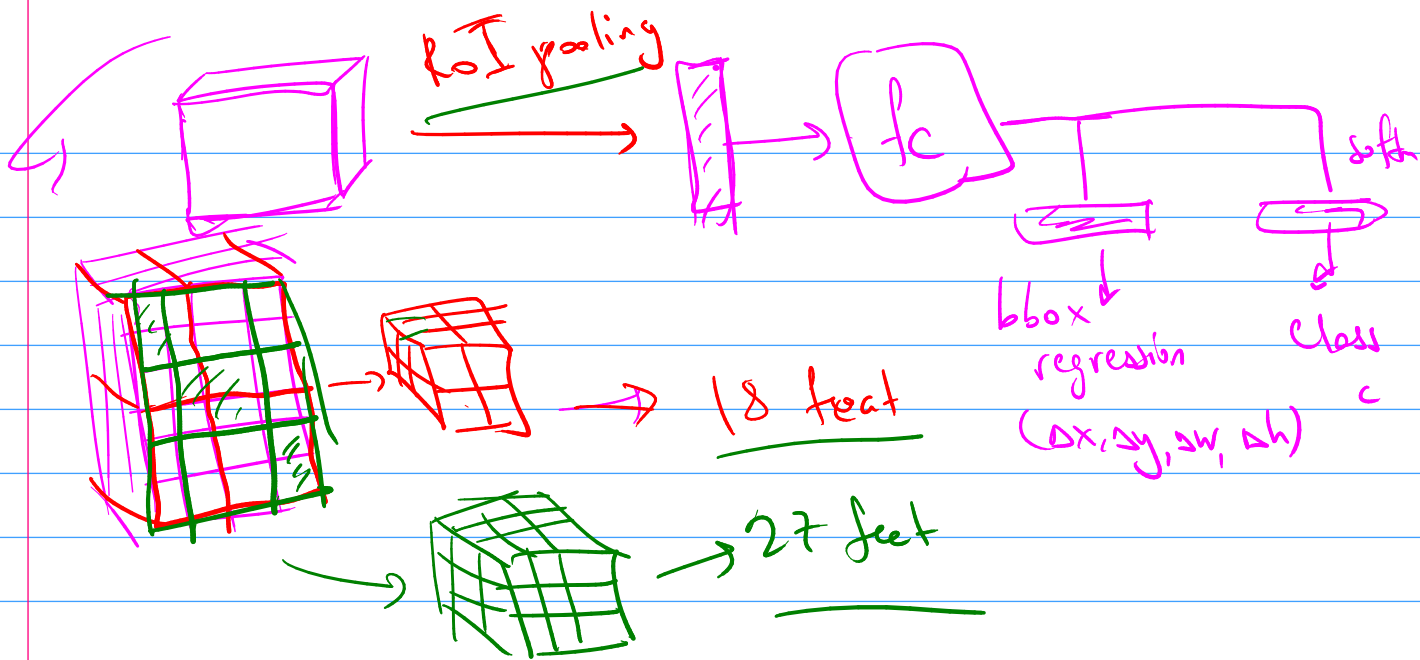 RoI pooling
fc
soft
bbox
regression
(Δx, Δy, Δw, Δh)
Class
c
18 feat
27 feet